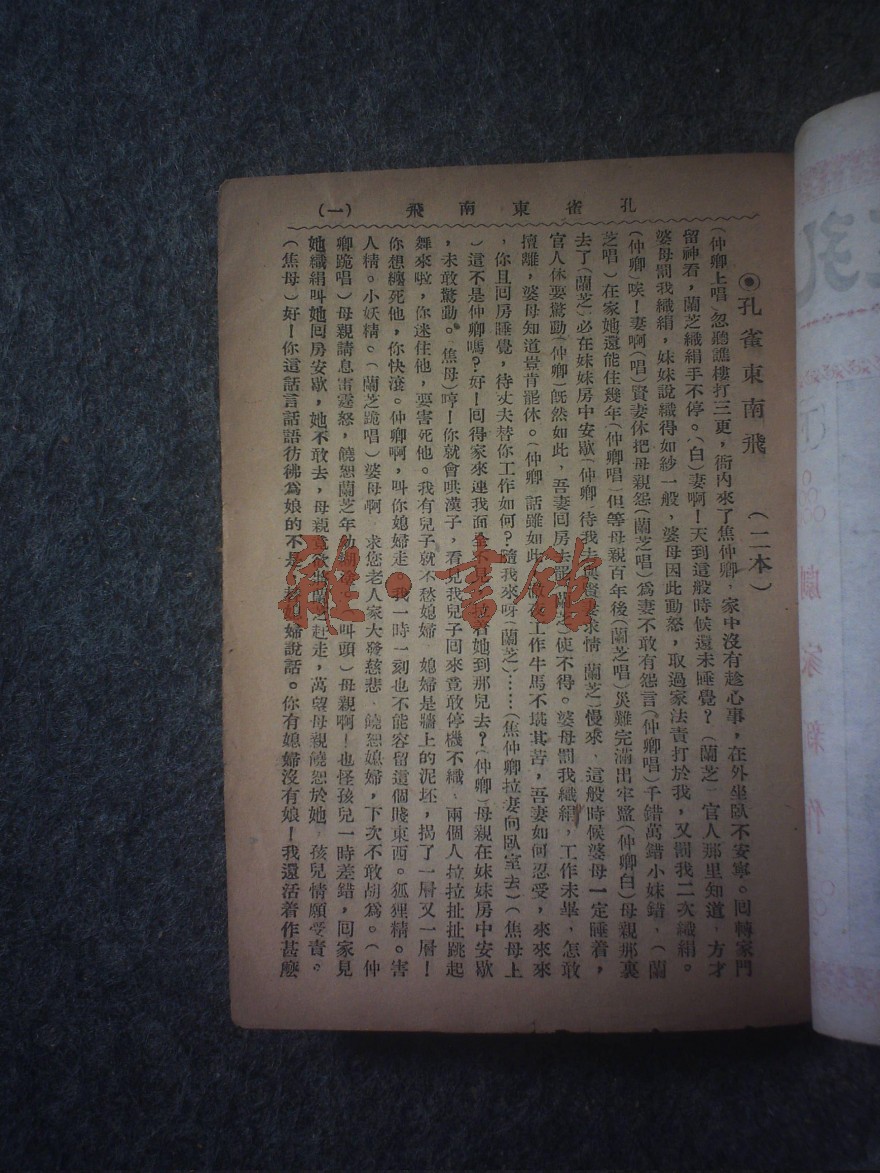 孔雀東南飛 (一)
◉孔雀東南飛 (二本)
(仲卿上唱)忽聽譙樓打三更，衙内來了焦仲卿，家中沒有趁心事，在外坐臥不安寧。囘轉家門
留神看，蘭芝織絹手不停。(白)妻啊！天到這般時候還未睡覺？(蘭芝)官人那里知道，方才
婆母罰我織絹，妹妹說織得如紗一般，婆母因此動怒，取過家法責打於我，又罰我二次織絹。
(仲卿)唉！妻啊(唱)賢妻休把母親怨(蘭芝唱)爲妻不敢有怨言(仲卿唱)千錯萬錯小妹錯，(蘭
芝唱)在家她還能住幾年(仲卿唱)但等母親百年後(蘭芝唱)災難完滿出牢監(仲卿白)母親那裏
去了(蘭芝)必在妹妹房中安歇(仲卿)待我去與賢妻求情 蘭芝)慢來、這般時候婆母一定睡着，
官人休要驚動(仲卿)旣然如此，吾妻囘房去罷 使不得。婆母罰我織絹，工作未畢，怎敢
擅離，婆母知道豈肯罷休。(仲卿 話雖如此 夜工作牛馬不堪其苦，吾妻如何忍受，來來來
，你且囘房睡覺，待丈夫替你工作如何？隨我來呀(蘭芝)……(焦仲卿拉妻向臥室去)(焦母上
)這不是仲卿嗎？好！囘得家來連我面全不見 着她到那兒去？(仲卿)母親在妹妹房中安歇
，未敢驚動。焦母)哼！你就會哄漢子，看見我兒子囘來竟敢停機不織，兩個人拉拉扯扯跳起
舞來啦，你迷住他，要害死他。我有兒子就不愁媳婦 媳婦是牆上的泥坯，揭了一層又一層！
你想纏死他，你快滾。仲卿啊，叫你媳婦走。我一時一刻也不能容留這個賤東西。狐狸精。害
人精。小妖精。(蘭芝跪唱)婆母啊 求您老人家大發慈悲 饒恕媳婦，下次不敢胡爲。(仲
卿跪唱)母親請息雷霆怒，饒恕蘭芝年幼 叫頭)母親啊！也怪孩兒一時差錯，囘家見
她織絹叫她囘房安歇，她不敢去，母親 趕走，萬望母親饒恕於她 孩兒情願受責。
(焦母)好！你這話言話語彷彿爲娘的不是 媳婦說話。你有媳婦沒有娘！我還活着作甚麽
劇家新作